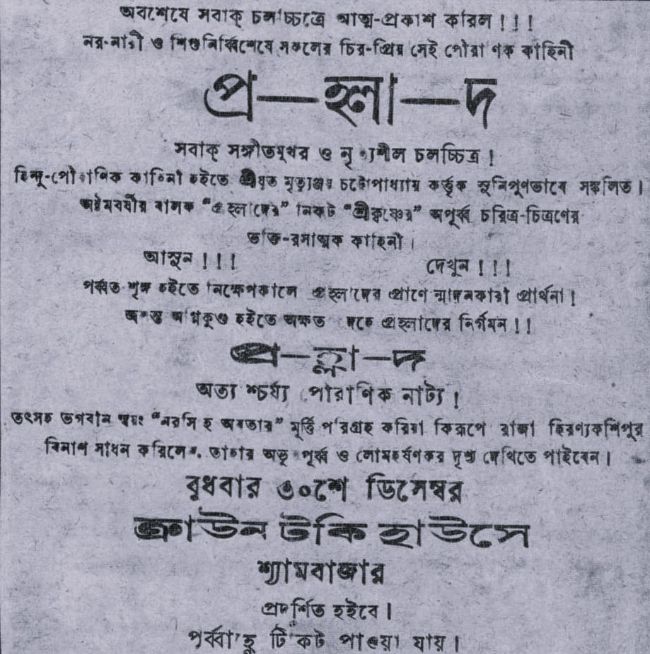 অবশেষে সবাক্ চলচ্চিত্রে আত্ম-প্রকাশ করিল ! ! !
নর-নারী ও শিশুনির্ব্বিশেষে সকলের চির-প্রিয় সেই পৌরাণিক কাহিনী
প্র—হ্লা—দ
সবাক্ সঙ্গীতমুখর ও নৃত্যশীল চলচ্চিত্র !
হিন্দু-পৌরাণিক কাহিনী হইতে শ্রীযুত মৃত্যুঞ্জয় চট্টোপাধ্যায় কর্ত্তৃক সুনিপুণভাবে সঙ্কলিত।
অষ্টমবর্ষীয় বালক “প্রহ্লাদের” নিকট “শ্রীকৃষ্ণের” অপূর্ব্ব চরিত্র-চিত্রণের
ভক্তি-রসাত্মক কাহিনী।
আসুন ! ! ! দেখুন ! ! !
পর্ব্বত শৃঙ্গ হইতে নিক্ষেপকালে প্রহ্লাদের প্রাণে প্রার্থনা !
জ্বলন্ত অগ্নিকুণ্ড হইতে অক্ষত দেহে প্রহ্লাদের নির্গমন ! !
প্র—হ্লা—দ
অত্যাশ্চর্য্য পৌরাণিক নাট্য !
তৎসহ ভগবান স্বয়ং “নরসিংহ অবতার” মূর্ত্তি পরিগ্রহ করিয়া কিরূপে রাজা হিরণ্যকশিপুর
বিনাশ সাধন করিলেন, তাহার অভূতপূর্ব্ব ও লোমহর্ষণকর দৃশ্য দেখিতে পাইবেন।
বুধবার ৩০শে ডিসেম্বর
ক্রাউন টকি হাউসে
শ্যামবাজার
প্রদর্শিত হইবে।
পূর্ব্বাহ্নে টিকিট পাওয়া যায়।